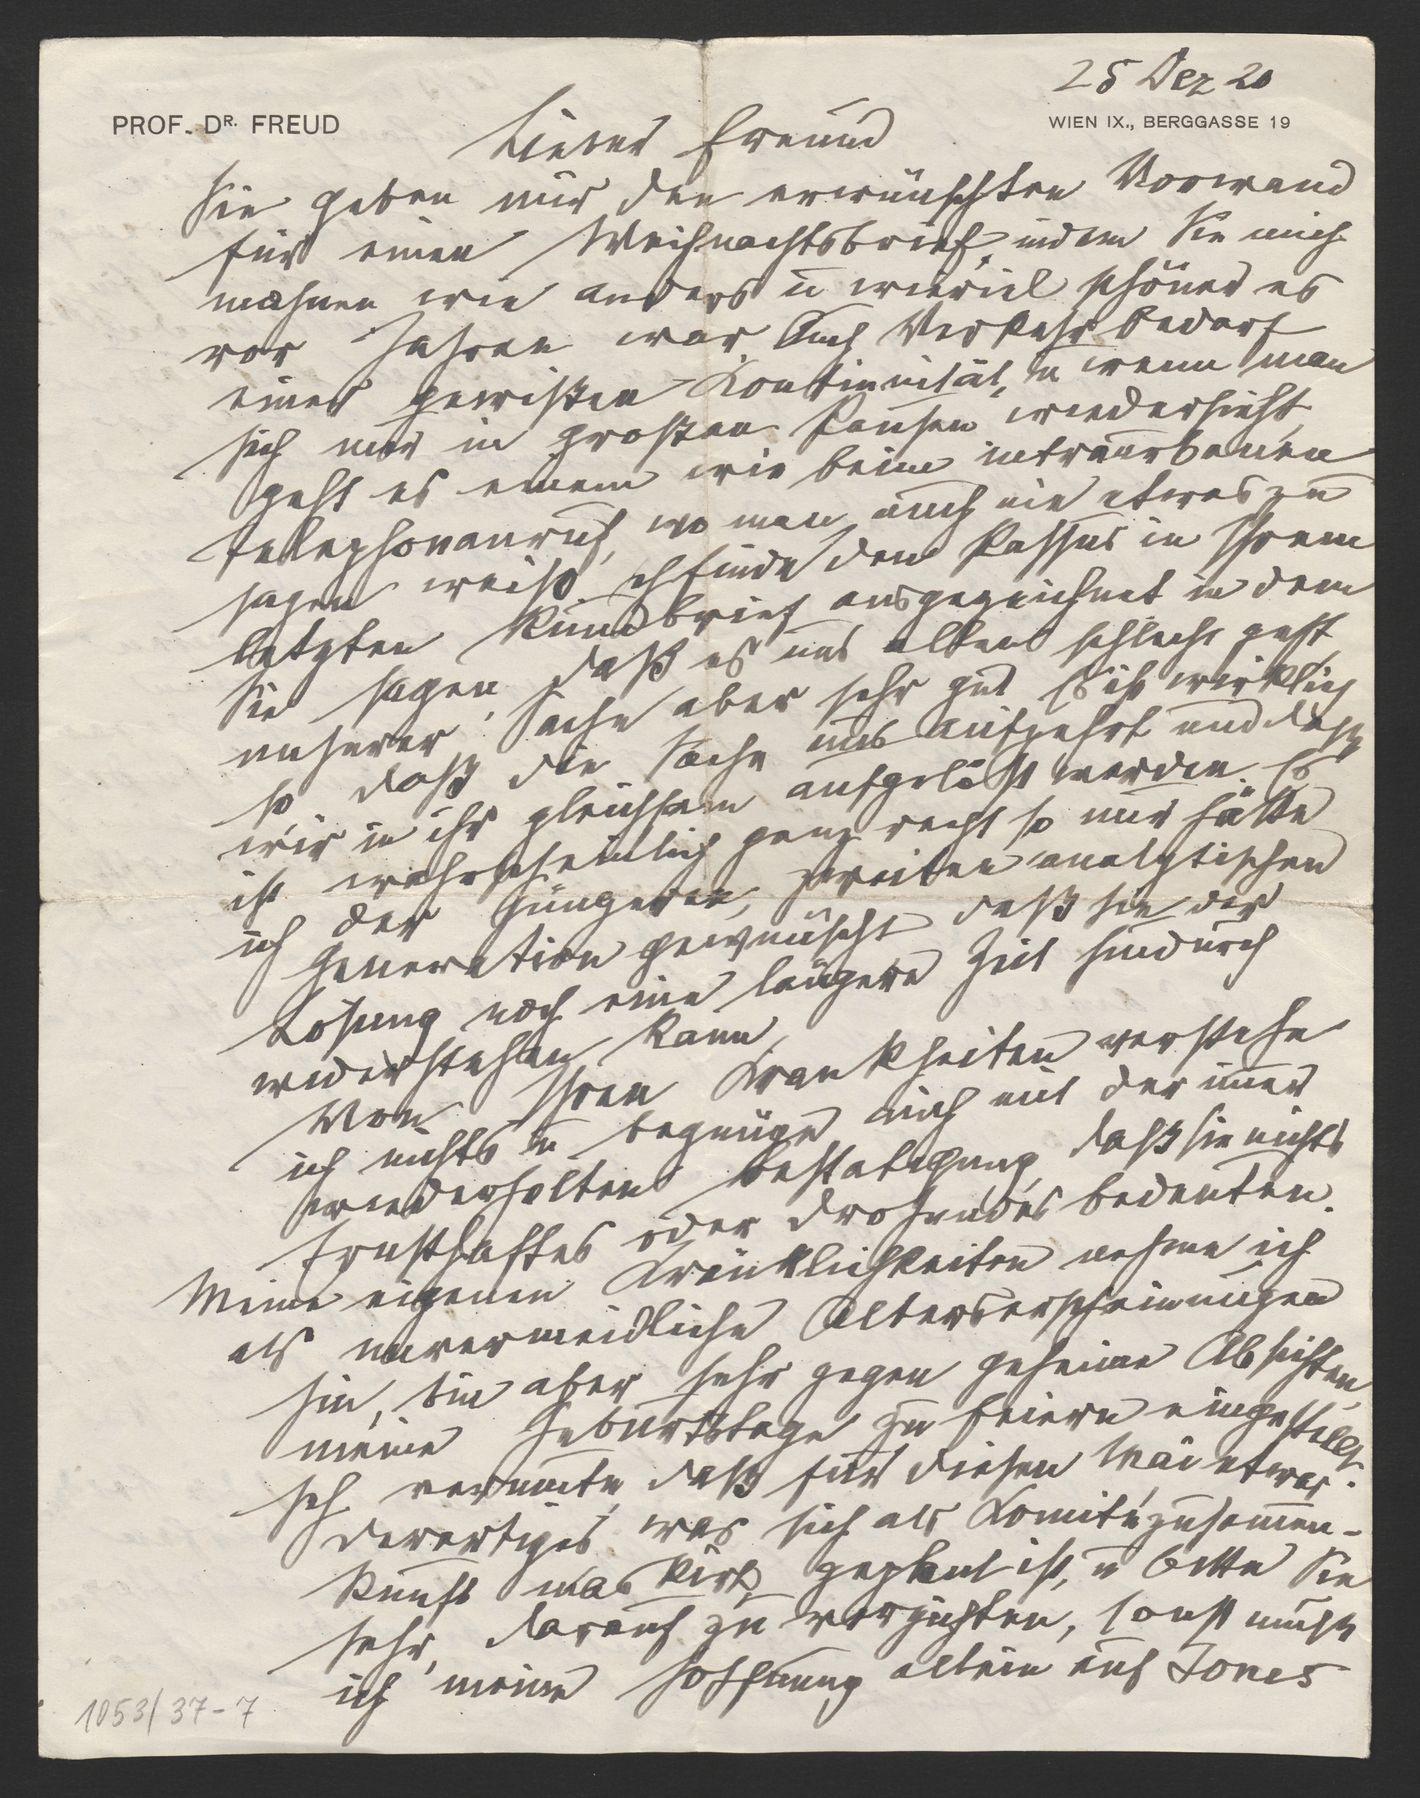 25 Dez 20
PROF. DR. FREUD
WIEN IX., BERGGASSE 19
Lieber Freund
Sie geben mir den erwünschten Vorwand
für einen Weihnachtsbrief, indem Sie mich
mahnen wie anders u wieviel schöner es
vor Jahren war. Auch Verkehr bedarf
einer gewißen Kontinuität, u wenn man
sich nur in großen Pausen wiedersieht,
geht es einem wie beim interurbanen
Telephonanruf, wo man auch nie etwas zu
sagen weiß. Ich finde den Passus in Ihrem
letzten Rundbrief ausgezeichnet in dem
Sie sagen, daß es uns allen schlecht geht,
unserer Sache aber sehr gut. Es ist wirklich
so, daß die Sache uns aufzehrt und daß
wir in ihr gleichsam aufgelöst werden. Es
ist wahrscheinlich ganz recht so, nur hätte
ich der jüngeren, zweiten analytischen
Generation gewünscht daß sie der
Lösung noch eine längere Zeit hindurch
widerstehen kann.
Von Ihren Krankheiten verstehe
ich nichts u begnüge mich mit der immer
wiederholten Bestätigung, daß sie nichts
Ernsthaftes oder Drohendes bedeuten.
Meine eigenen Kränklichkeiten nehme ich
als unvermeidliche Alterserscheinungen
hin, bin aber sehr gegen geheime Absichten,
meine Geburtstage zu feiern eingestellt.
Ich vermute, daß für diesen Mai etwas
derartiges, was sich als Komitézusammen-
kunft geplant ist, u bitte Sie
sehr, darauf zu verzichten, sonst müßte
ich meine Hoffnung allein auf Jones
1053/37-7